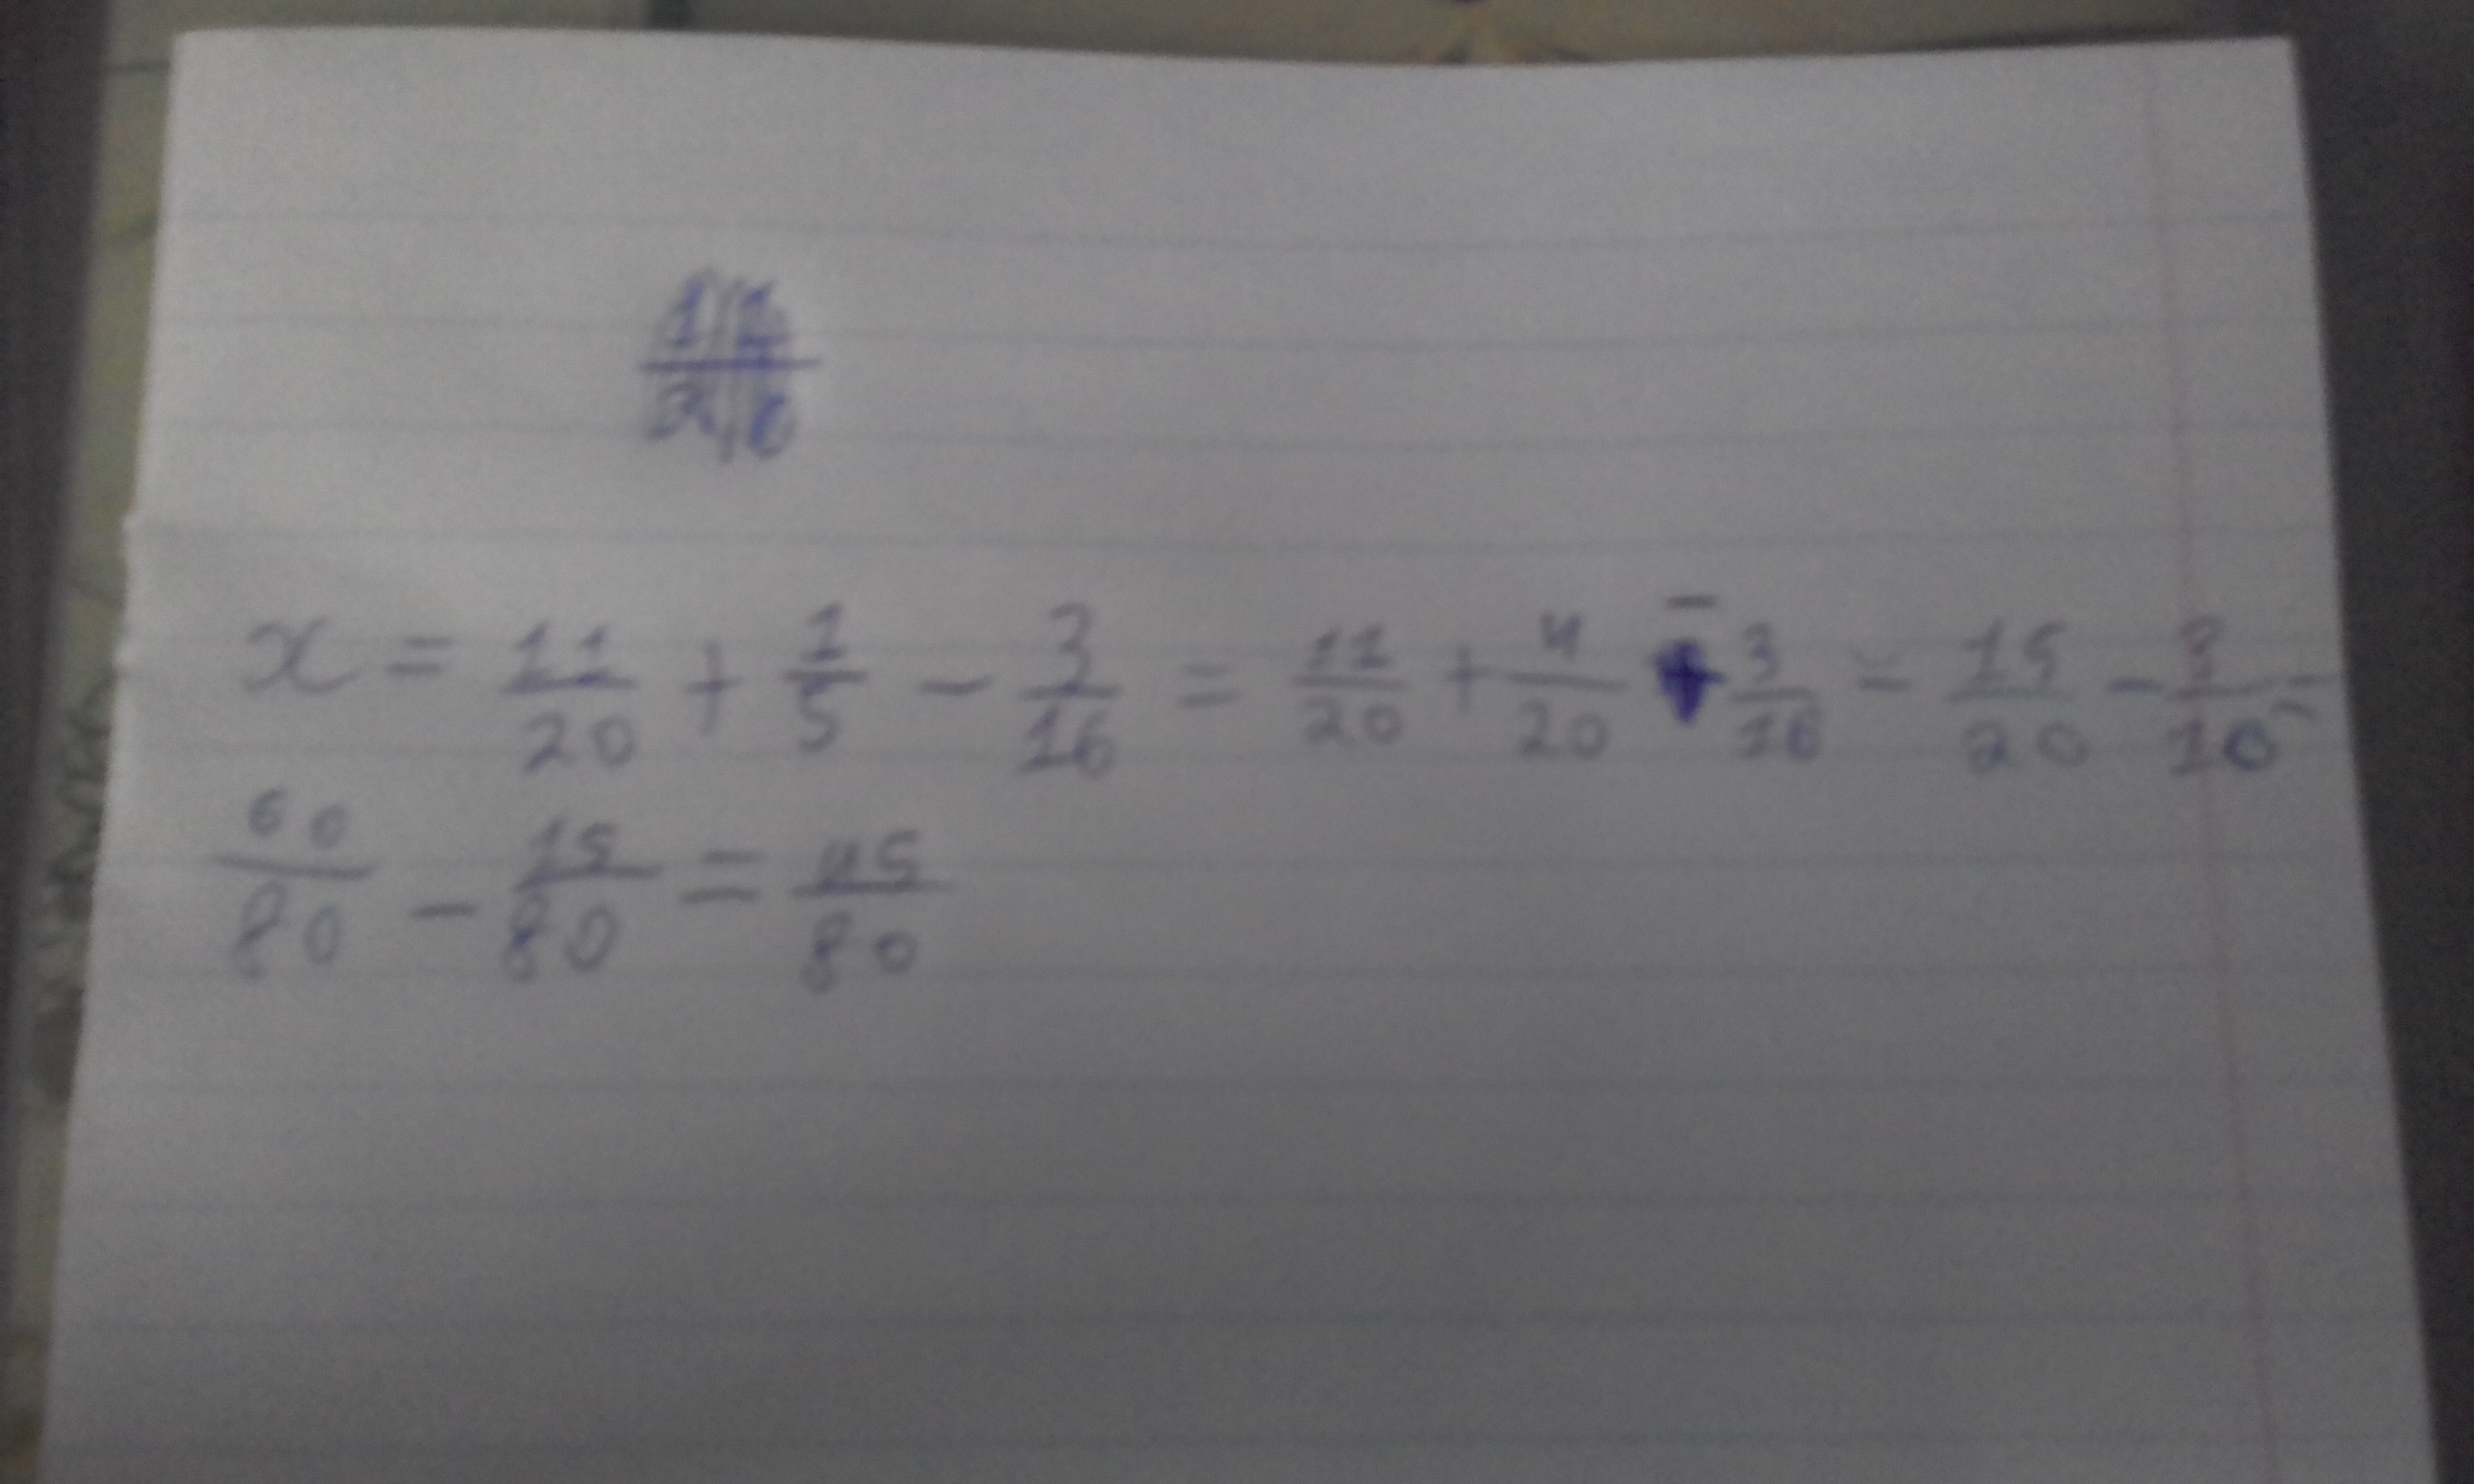 x = 11/20 + 1/5 - 3/16 = 11/20 + 4/20 - 3/16 = 15/20 - 3/16 =
60/80 - 15/80 = 45/80